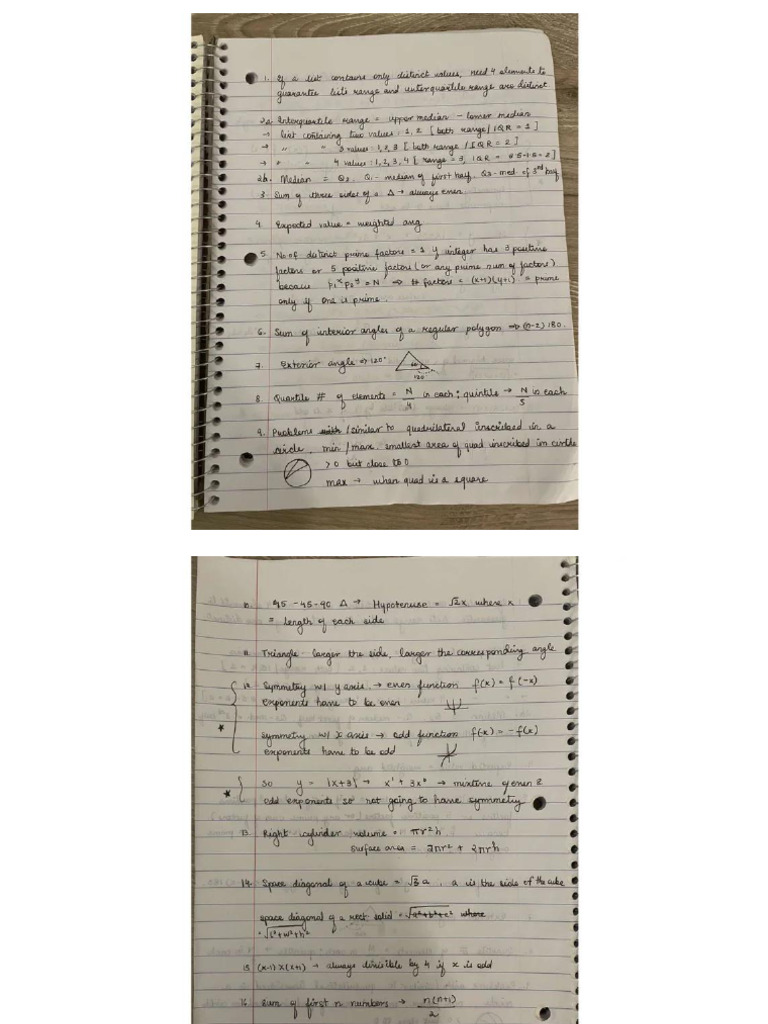 1. If a list contains only distinct values, need 4 elements to
guarantee lists range and interquartile range are distinct.
2a. Interquartile range = upper median - lower median
→ list containing two values : 1, 2 [both range / IQR = 1]
→ " " 3 values : 1, 2, 3 [both range / IQR = 2]
→ " " 4 values : 1, 2, 3, 4 [range = 3, IQR = 3.5-1.5 = 2]
2b. Median = Q2, Q1 - median of first half, Q3 - med. of 3rd half
3. Sum of three sides of a Δ → always even
4. Expected value = weighted avg
5. No of distinct prime factors = 1 if integer has 3 positive
factors or 5 positive factors (or any prime num of factors)
because p1^x p2^y = N ⇒ # factors = (x+1)(y+1) = prime
only if one is prime.
6. Sum of interior angles of a regular polygon ⇒ (n-2)180.
7. Exterior angle ⇒ 120°
60
120°
8. Quartile # of elements = N/4 in each ; quintile → N/5 in each
9. Problems with / similar to quadrilateral inscribed in a
circle, min / max. smallest area of quad inscribed in circle
> 0 but close to 0
max → when quad is a square
10. 45 - 45 - 90 Δ → Hypotenuse = √2x where x
= length of each side
11. Triangle larger the side, larger the corresponding angle
12. Symmetry w/ y axis → even function f(x) = f(-x)
exponents have to be even
symmetry w/ x axis → odd function f(-x) = -f(x)
exponents have to be odd
so y = |x+3| → x¹ + 3x⁰ → mixture of even &
odd exponents so not going to have symmetry
13. Right cylinder volume = πr²h
surface area = 2πr² + 2πrh
14. Space diagonal of a cube = √3 a, a is the side of the cube
space diagonal of a rect. solid = √a²+b²+c² where
= √l²+w²+h²
15 (x-1)x(x+1) → always divisible by 4 if x is odd
16. Sum of first n numbers → n(n+1)/2